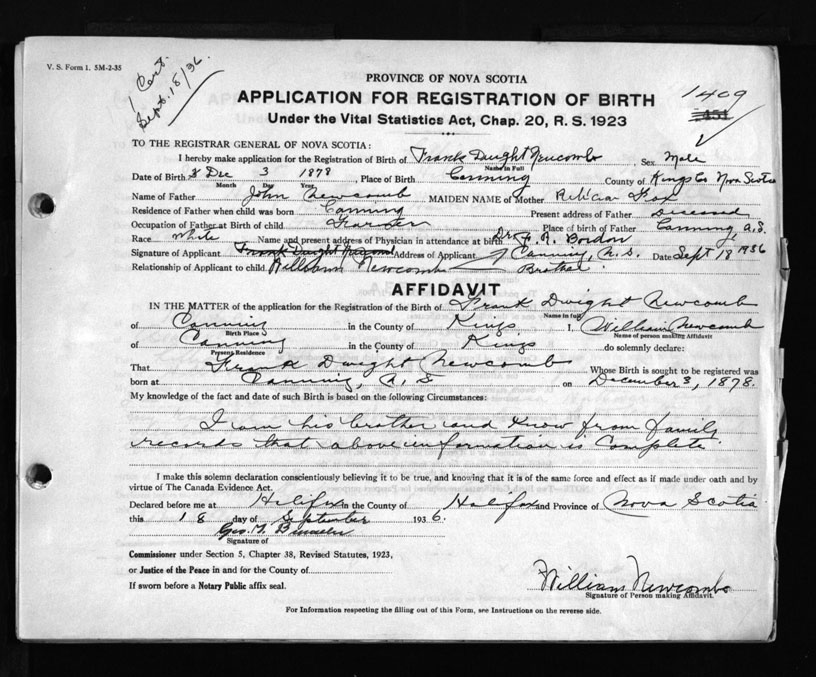 V. S. Form 1. 5M-2-35
1 Cert.
Sept. 18/36.
PROVINCE OF NOVA SCOTIA
APPLICATION FOR REGISTRATION OF BIRTH
1409
451
Under the Vital Statistics Act, Chap. 20, R. S. 1923
TO THE REGISTRAR GENERAL OF NOVA SCOTIA:
I hereby make application for the Registration of Birth of Frank Dwight Newcomb Sex Male
Name in Full
Date of Birth Dec 3 1878 Place of Birth Canning County of Kings Co Nova Scotia
Month Day Year
Name of Father John Newcomb MAIDEN NAME of Mother Fox
Residence of Father when child was born Canning Present address of Father Deceased
Occupation of Father at Birth of child Place of Birth of Father Canning N.S.
Race White Name and present address of Physician in attendance at birth Dr F. A. Bordon
Signature of Applicant Frank Dwight Newcomb Address of Applicant Canning, N.S. Date Sept 18 1936
Relationship of Applicant to child William Newcomb Brother
AFFIDAVIT
IN THE MATTER of the application for the Registration of the Birth of Frank Dwight Newcomb
Name in full
of Canning in the County of Kings I, William Newcomb
Birth Place Name of person making Affidavit
of Canning in the County of Kings do solemnly declare:
Present Residence
That Frank Dwight Newcomb Whose Birth is sought to be registered was
born at Canning, N.S on December 3, 1878.
My knowledge of the fact and date of such Birth is based on the following Circumstances:
I am his brother and know from family
records that above information is Complete.
I make this solemn declaration conscientiously believing it to be true, and knowing that it is of the same force and effect as if made under oath and by
virtue of The Canada Evidence Act.
Declared before me at Halifax in the County of Halifax and Province of Nova Scotia
this 18 day of September 1936.
Geo. M.
Signature of
Commissioner under Section 5, Chapter 38, Revised Statutes, 1923,
or Justice of the Peace in and for the County of
If sworn before a Notary Public affix seal.
William Newcomb
Signature of Person making Affidavit.
For Information respecting the filling out of this Form, see Instructions on the reverse side.